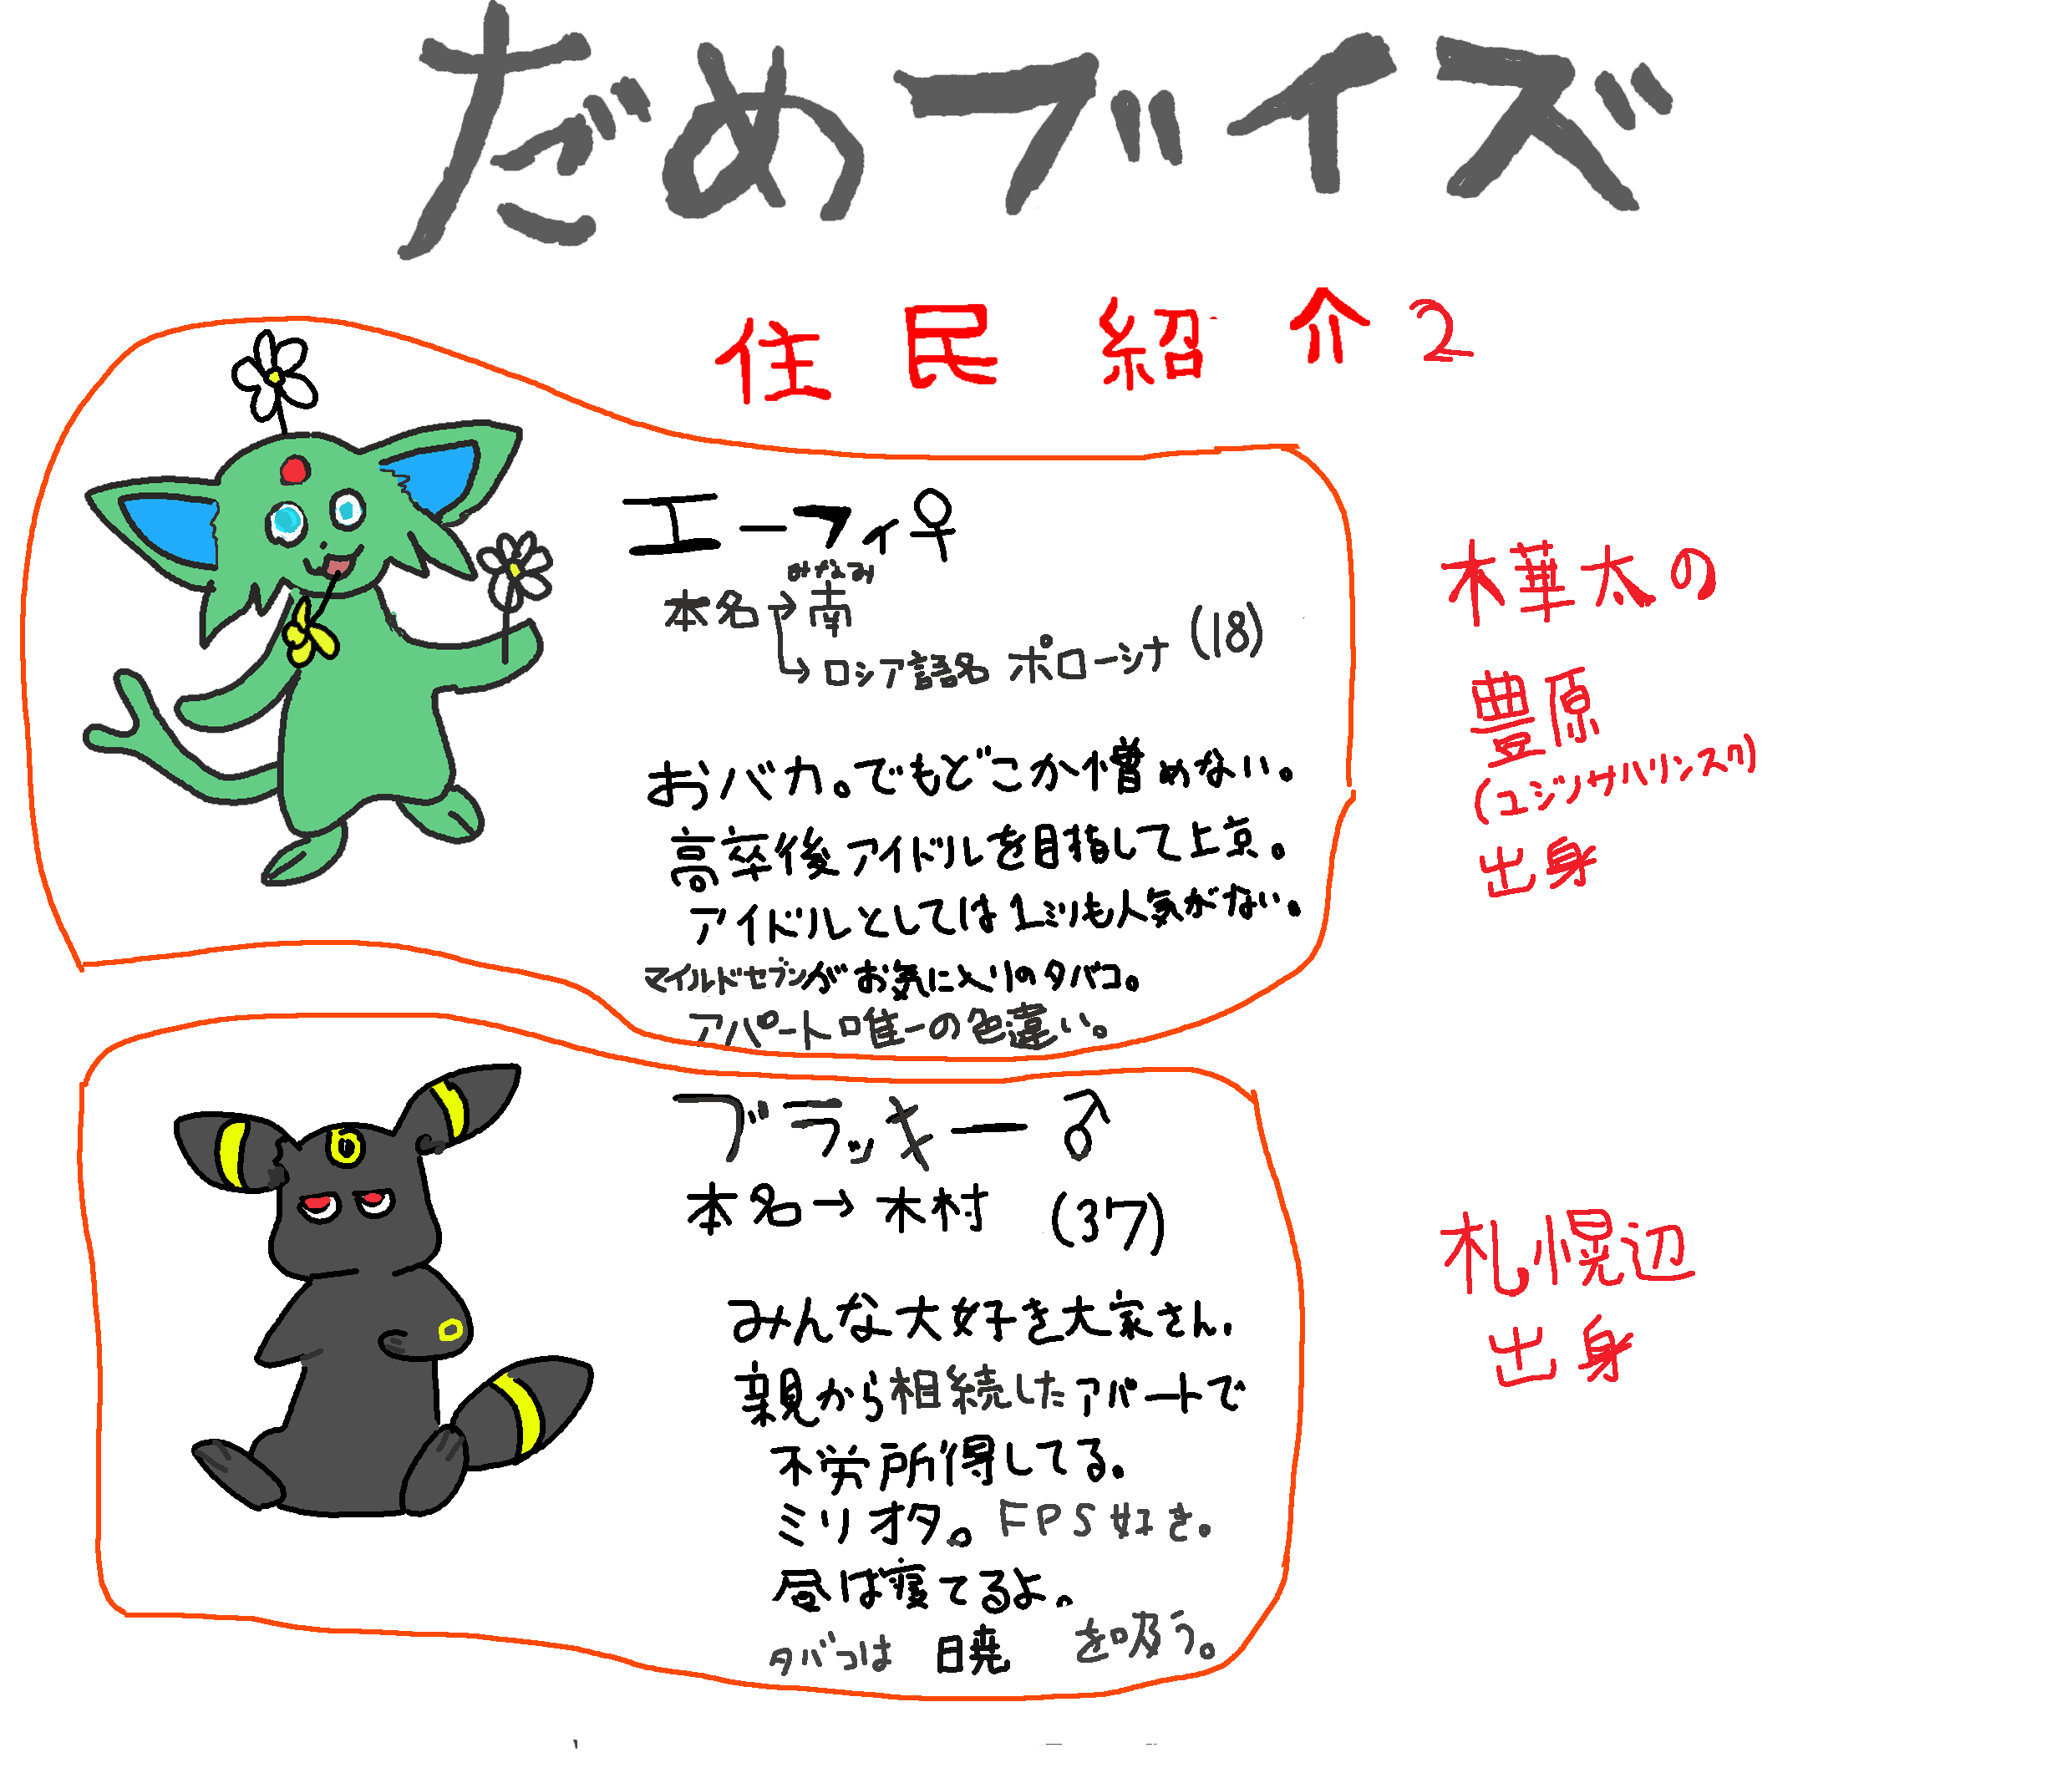 だめブイズ
住民紹介2
エーフィ♀
みなみ
本名→南
→ロシア語名 ポローシナ (18)
おバカ。でもどこか憎めない。
高卒後アイドルを目指して上京。
アイドルとしては1ミリも人気がない。
マイルドセブンがお気に入りのタバコ。
アパート唯一の色違い。
樺太の
豊原
(ユジノサハリンスク)
出身
ブラッキー♂
本名→木村 (37)
みんな大好き大家さん。
親から相続したアパートで
不労所得してる。
ミリオタ。FPS好き。
昼は寝てるよ。
タバコは 暁 を吸う。
札幌辺
出身